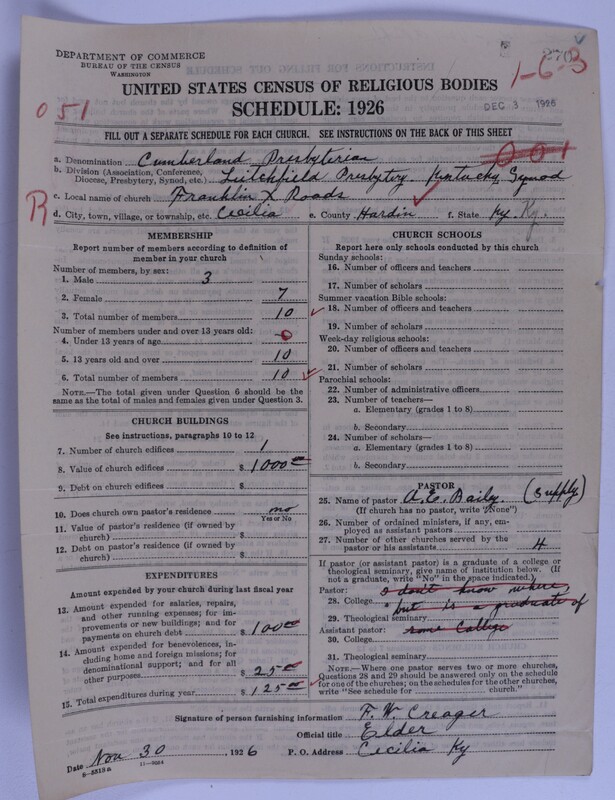 DEPARTMENT OF COMMERCE
BUREAU OF THE CENSUS
WASHINGTON
1-6-3
UNITED STATES CENSUS OF RELIGIOUS BODIES
SCHEDULE: 1926
DEC 3 1926
051
FILL OUT A SEPARATE SCHEDULE FOR EACH CHURCH. SEE INSTRUCTIONS ON THE BACK OF THIS SHEET
a. Denomination Cumberland Presbyterian 001
b. Division (Association, Conference, Diocese, Presbytery, Synod, etc.) Leitchfield Presbytery Kentucky Synod
c. Local name of church Franklin X Roads
R
d. City, town, village, or township, etc. Cecilia e. County Hardin f. State Ky. Ky.
MEMBERSHIP
Report number of members according to definition of member in your church
Number of members, by sex:
1. Male 3
2. Female 7
3. Total number of members 10
Number of members under and over 13 years old:
4. Under 13 years of age 0
5. 13 years old and over 10
6. Total number of members 10
NOTE.—The total given under Question 6 should be the same as the total of males and females given under Question 3.
CHURCH BUILDINGS
See instructions, paragraphs 10 to 12
7. Number of church edifices 1
8. Value of church edifices $ 1000 00
9. Debt on church edifices $
10. Does church own pastor's residence? no
Yes or No
11. Value of pastor's residence (if owned by church) $
12. Debt on pastor's residence (if owned by church) $
EXPENDITURES
Amount expended by your church during last fiscal year
13. Amount expended for salaries, repairs, and other running expenses; for improvements or new buildings; and for payments on church debt $ 100 00
14. Amount expended for benevolences, including home and foreign missions; for denominational support; and for all other purposes $ 25 00
15. Total expenditures during year $ 125 00
CHURCH SCHOOLS
Report here only schools conducted by this church
Sunday schools:
16. Number of officers and teachers
17. Number of scholars
Summer vacation Bible schools:
18. Number of officers and teachers
19. Number of scholars
Week-day religious schools:
20. Number of officers and teachers
21. Number of scholars
Parochial schools:
22. Number of administrative officers
23. Number of teachers—
a. Elementary (grades 1 to 8)
b. Secondary
24. Number of scholars—
a. Elementary (grades 1 to 8)
b. Secondary
PASTOR
25. Name of pastor A. E. Baily. (Supply)
(If church has no pastor, write "None")
26. Number of ordained ministers, if any, employed as assistant pastors
27. Number of other churches served by the pastor or his assistants 4
If pastor (or assistant pastor) is a graduate of a college or theological seminary, give name of institution below. (If not a graduate, write "No" in the space indicated.)
Pastor: I don't know where
28. College but is a graduate of
29. Theological seminary
Assistant pastor: some College
30. College
31. Theological seminary
NOTE.—Where one pastor serves two or more churches, Questions 28 and 29 should be answered only on the schedule for one of the churches; on the schedules for the other churches, write "See schedule for church."
Signature of person furnishing information F. W. Creager
Official title Elder
Date Nov 30 1926 P. O. Address Cecilia Ky